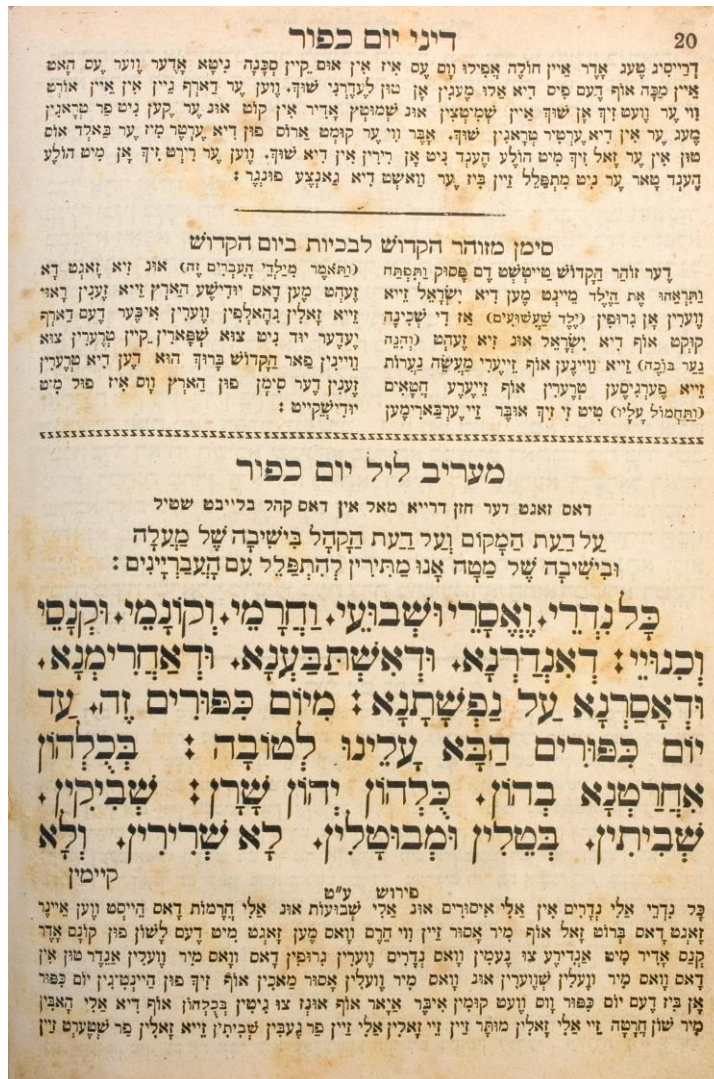 דיני יום כפור
20
דרייסיג טעג אדר איין חולה אפילו ווס עס איז אין אום קיין סכנה ניטא אדער ווער עס האט
איין מכה אויף דעם פיס דיא אלו מעגין אן טון לעדרני שוך. ווען ער דארף גיין אין איין אורט
ווי ער וועט זיך אן שוך איין שמיטצין אונ שמוטץ אדיר אין קוט אונ ער קען ניט פר טראגין
מעג ער אין דיא ערטיר טראגין שוך. אבר ווי ער קומט ארוס פון דיא ערטר מיז ער באלד אוס
טון אין ער זאל זיך מיט הולע הענד ניט אן רירין אין דיא שוך. ווען ער רירט זיך אן מיט הולע
הענד טאר ער ניט מתפלל זיין ביז ער וואשט דיא גאנצע פונגר :
סימן מזוהר הקדוש לבכיות ביום הקדוש
דער זוהר הקדוש טייטשט דם פסוק ותפתח
ותראהו את הילד מיינט מען דיא ישראל זייא
ווערין אן גרופין (ילד שעשועים) אז די שכינה
קוקט אויף דיא ישראל אונ זיא זעהט (והנה
נער בוכה) זייא וויינען אויף זייערי מעשה נערות
זייא פערגיסען טרערין אויף זייערע חטאים
(ותחמול עליו) טיט זי זיך אובר זיי ערבארימען
(ותאמר מילדי העברים זה) אונ זיא זאגט דא
זעהט מען דאס יודישע הארץ זייא זענין ראוי
זייא זאלין גהאלפין ווערין איבער דעם דארף
יעדער יוד ניט צוא שפארין קיין טרערין צוא
וויינין פאר הקדוש ברוך הוא דען דיא טרערין
זענין דער סימן פון הארץ ווס איז פול מיט
יודישקייט :
מעריב ליל יום כפור
דאס זאגט דער חזן דרייא מאל אין דאס קהל בלייבט שטיל
על דעת המקום ועל דעת הקהל בישיבה של מעלה
ובישיבה של מטה אנו מתירין להתפלל עם העבריינים :
כָּל נִדְרֵי. וֶאֱסָרֵי וּשְׁבוּעֵי. וַחֲרָמֵי. וְקוֹנָמֵי. וְקִנָסֵי
וְכִנוּיֵי : דְאִנְדַרְנָא. וּדְאִשְׁתַּבַּעְנָא. וּדְאַחֲרִימְנָא.
וּדְאָסַרְנָא עַל נַפְשָׁתָנָא : מִיוֹם כִּפּוּרִים זֶה. עַד
יוֹם כִּפּוּרִים הַבָּא עָלֵינוּ לְטוֹבָה : בְּכֻלְהוֹן
אִחֲרַטְנָא בְהוֹן. כֻּלְהוֹן יְהוֹן שָׁרָן : שְׁבִיקִין.
שְׁבִיתִין. בְּטֵלִין וּמְבוּטָלִין. לָא שְׁרִירִין. וְלָא
קיימין
פירוש ע"ט
כל נדרי אלי נדרים אין אלי איסורים אונ אלי שבועות אונ אלי חרמות דאס הייסט ווען איינר
זאגט דאס ברוט זאל אויף מיר אסור זיין ווי חרם וואס מען זאגט מיט דעם לשון פון קונם אדר
קנס אדיר מיט אנדירע צו נעמין וואס נדרים ווערין גרופין דאס וואס מיר ווערין אנדר טון אין
דאס וואס מיר וועלין שווערין אונ וואס מיר וועלין אסור מאכין אויף זיך פון היינטיגין יום כפור
אן ביז דעם יום כפור ווס וועט קומין איבר איאר אויף אונז צו גיטין בכלהון אויף דיא אלי האבין
מיר שון חרטה זיי אלי זאלין מותר זיין זיי זאלין אלי זיין פר געבין שביתין זייא זאלין פר שטערט זיין